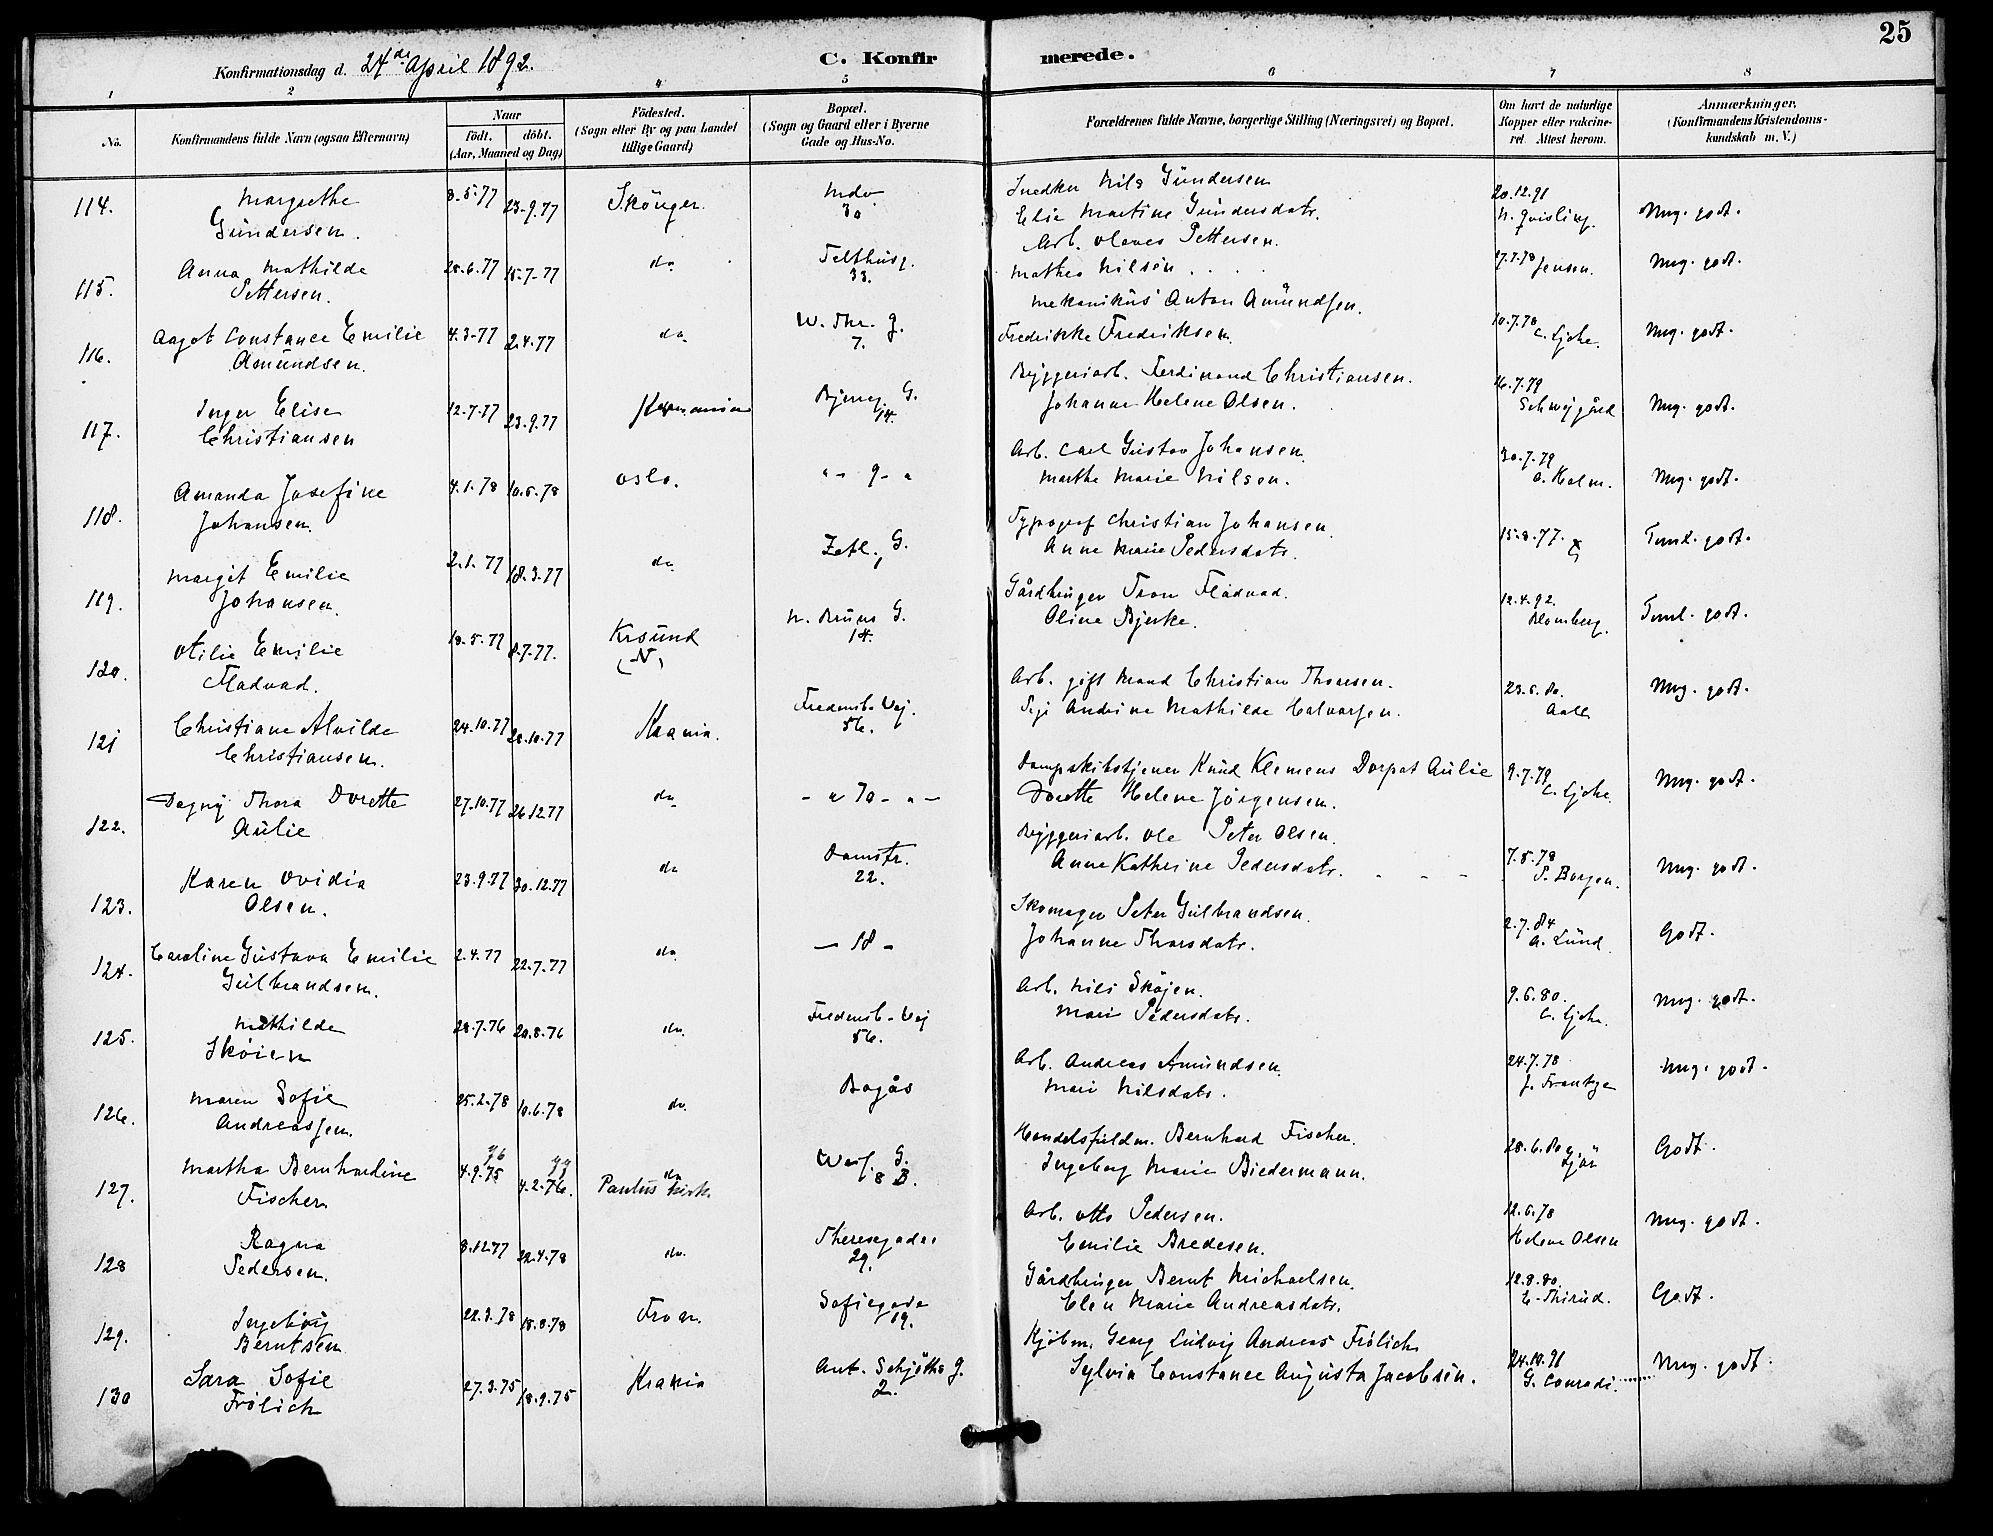 25
Konfirmationsdag d. 24de April 1892.
C. Konfirmerede.
1 2 3 4 5 6 7 8
No.
Konfirmandens fulde Navn (ogsaa Efternavn)
Naar
födt. döbt.
(Aar, Maaned og Dag)
Födested.
(Sogn eller By og paa Landet
tillige Gaard)
Bopæl.
(Sogn og Gaard eller i Byerne
Gade og Hus-No.
Forældrenes fulde Navne, borgerlige Stilling (Næringsvei) og Bopæl.
Om havt de naturlige
Kopper eller vakcine-
ret. Attest herom.
Anmærkninger.
(Konfirmandens Kristendoms-
kundskab m. V.)
114. Margrethe
Gundersen.
8-5-77 23-9.77
30
Snedker Nils Gundersen
Elie Martine Gundersdatr.
20.12.91
N. Quisling.
Mug. godt.
115. Anna Mathilde
Pettersen.
28-6.77 15-7-77
do
33.
Arb. Olaves Pettersen.
Mathea Nilsen
17.7.78 Jensen.
Mug. godt.
116. Aagot Constance Emilie
Amundsen.
4.3-77 2.4.77
do
W. Thr. g.
7.
Mekanikus Anton Amundsen.
Fredrikke Fredriksen.
10.7.78
C. Ljche.
Mug. godt.
117. Inger Elise
Christiansen
12-7-77 23.9.77
14.
Bryggeriarb. Ferdinand Christiansen.
Johanne Helene Olsen.
16.7.79
Mug. godt.
118. Amanda Josefine
Johansen.
4.1.78 10.5.78
Oslo.
"- 9- "
Arb. Carl Gustav Johansen.
Marthe Marie Nilsen.
30.7.79
A. Holm.
Mug. godt.
119. Margit Emilie
Johansen.
2.1.77 18.3.77
do
Zetl. G.
Typograf Christian Johansen.
Anne Marie Pedersdatr.
15-8-77.
Temd. godt.
120. Otilie Emilie
Fladvad.
18-5-77 8.7.77.
Krsund
(N)
N. Bruns G.
14.
Gårdbruger Tron Fladvad.
Oline Bjerke.
12.4.92.
Blomberg.
Temd. godt.
121 Christiane Alvilde
Christiansen.
24.10.77 28.10.77
Krania.
Fredensb. Vej.
56.
Arb. gift Mand Christian Thomsen.
Pige Andrine Mathilde Halvorsen.
23.6.80.
Aall
Mug. godt.
122. Dagny Thora Dorette
Aulie
27.10.77 26.12.77
do
- " 70 - " -
Dampskibstjener Knud Klemens Dorpat Aulie
Dorette Helene Jörgensen.
9.7.79
C. Ljche.
Mug. godt.
123. Karen Ovidia
Olsen.
23.9.77 30.12.77
do
Damstr.
22.
Bryggeriarb. Ole Peter Olsen.
Anne Kathrine Pedersdatr.
7.8.78
P. Borgen.
Mug. godt.
124. Caroline Gustava Emilie
Gulbrandsen.
2.4.77 22.7.77
do
- 18 -
Skomager Peter Gulbrandsen.
Johanne Thorsdatr.
2.7.84
A. Lund.
Godt.
125. Mathilde
Skoien
28.7.76 20.8.76
do.
Fredensb. Vej
56.
Arb. Nils Skojen.
Mari Pedersdatr.
9.6.80.
C. Ljche.
Mug. godt.
126. Maren Sofie
Andreassen.
25.2.78 10.6.78
do.
Bogås
Arb. Andreas Amundsen.
Mari Nilsdatr.
24.7.78
J. Frantze
Mug. godt.
127. Martha Bernhardine
Fischer
76
4.9.75
77
4.2.76.
do
Paulus Kirk.
G.
8 B.
Handelsfuldm. Bernhard Fischer.
Ingeborg Marie Biedermann.
28.6.80
Godt.
128 Ragna
Pedersen.
8.12.77 22.4.78
do.
Theresegades
29.
Arb. Otto Pedersen.
Emilie Bredesen.
12.6.78
Helene Olsen
Mug. godt.
129. Ingeborg
Berntsen
22.3.78 18.8.78
From.
Sofiegade
19.
Gårdbruger Bernt Michaelsen.
Elen Marie Andreasdatr.
12.8.80.
E. Thirud.
Godt.
130 Sara Sofie
Frölich
27.3.75 18.9.75
Krania
Ant. Schjöths g.
2.
Kjöbm. Georg Ludvig Andreas Frölich
Sylvia Constance Augusta Jacobsen.
24.10.91
G. Conradi.
Mug. godt.